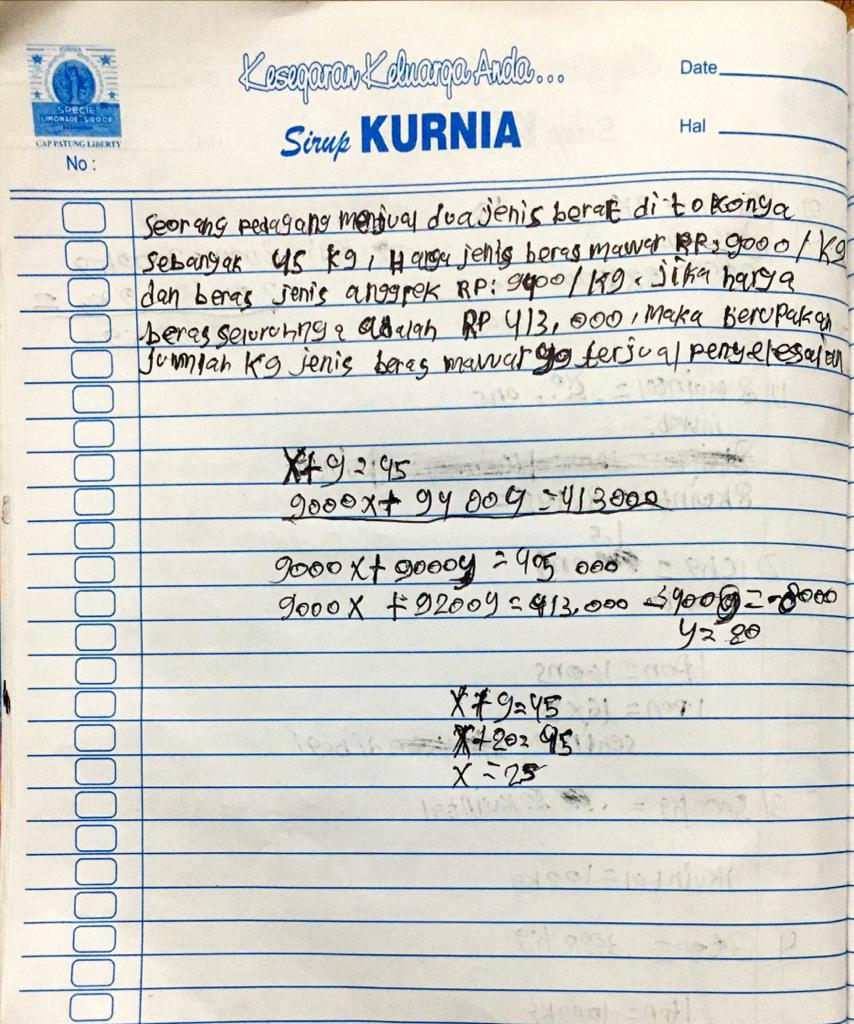 KURNIA
SPECIE
LIMONADE - SIROOP
CAP PATUNG LIBERTY
No :
Kesegaran Keluarga Anda...
Sirup KURNIA
Date
Hal
Seorang pedagang menjual dua jenis beras di tokonya
sebanyak 45 kg, Harga jenis beras mawar RP: 9000 / kg
dan beras jenis anggrek RP: 9400 / kg. jika harga
beras seluruhnya adalah RP 413,000, maka berupakan
jumlah kg jenis beras mawar yg terjual penyelesaian
x + y = 45
9000x + 9400y = 413000
9000x + 9000y = 405 000
9000x + 9200y = 413,000 -400y = -8000
y = 20
x + y = 45
x + 20 = 45
x = 25